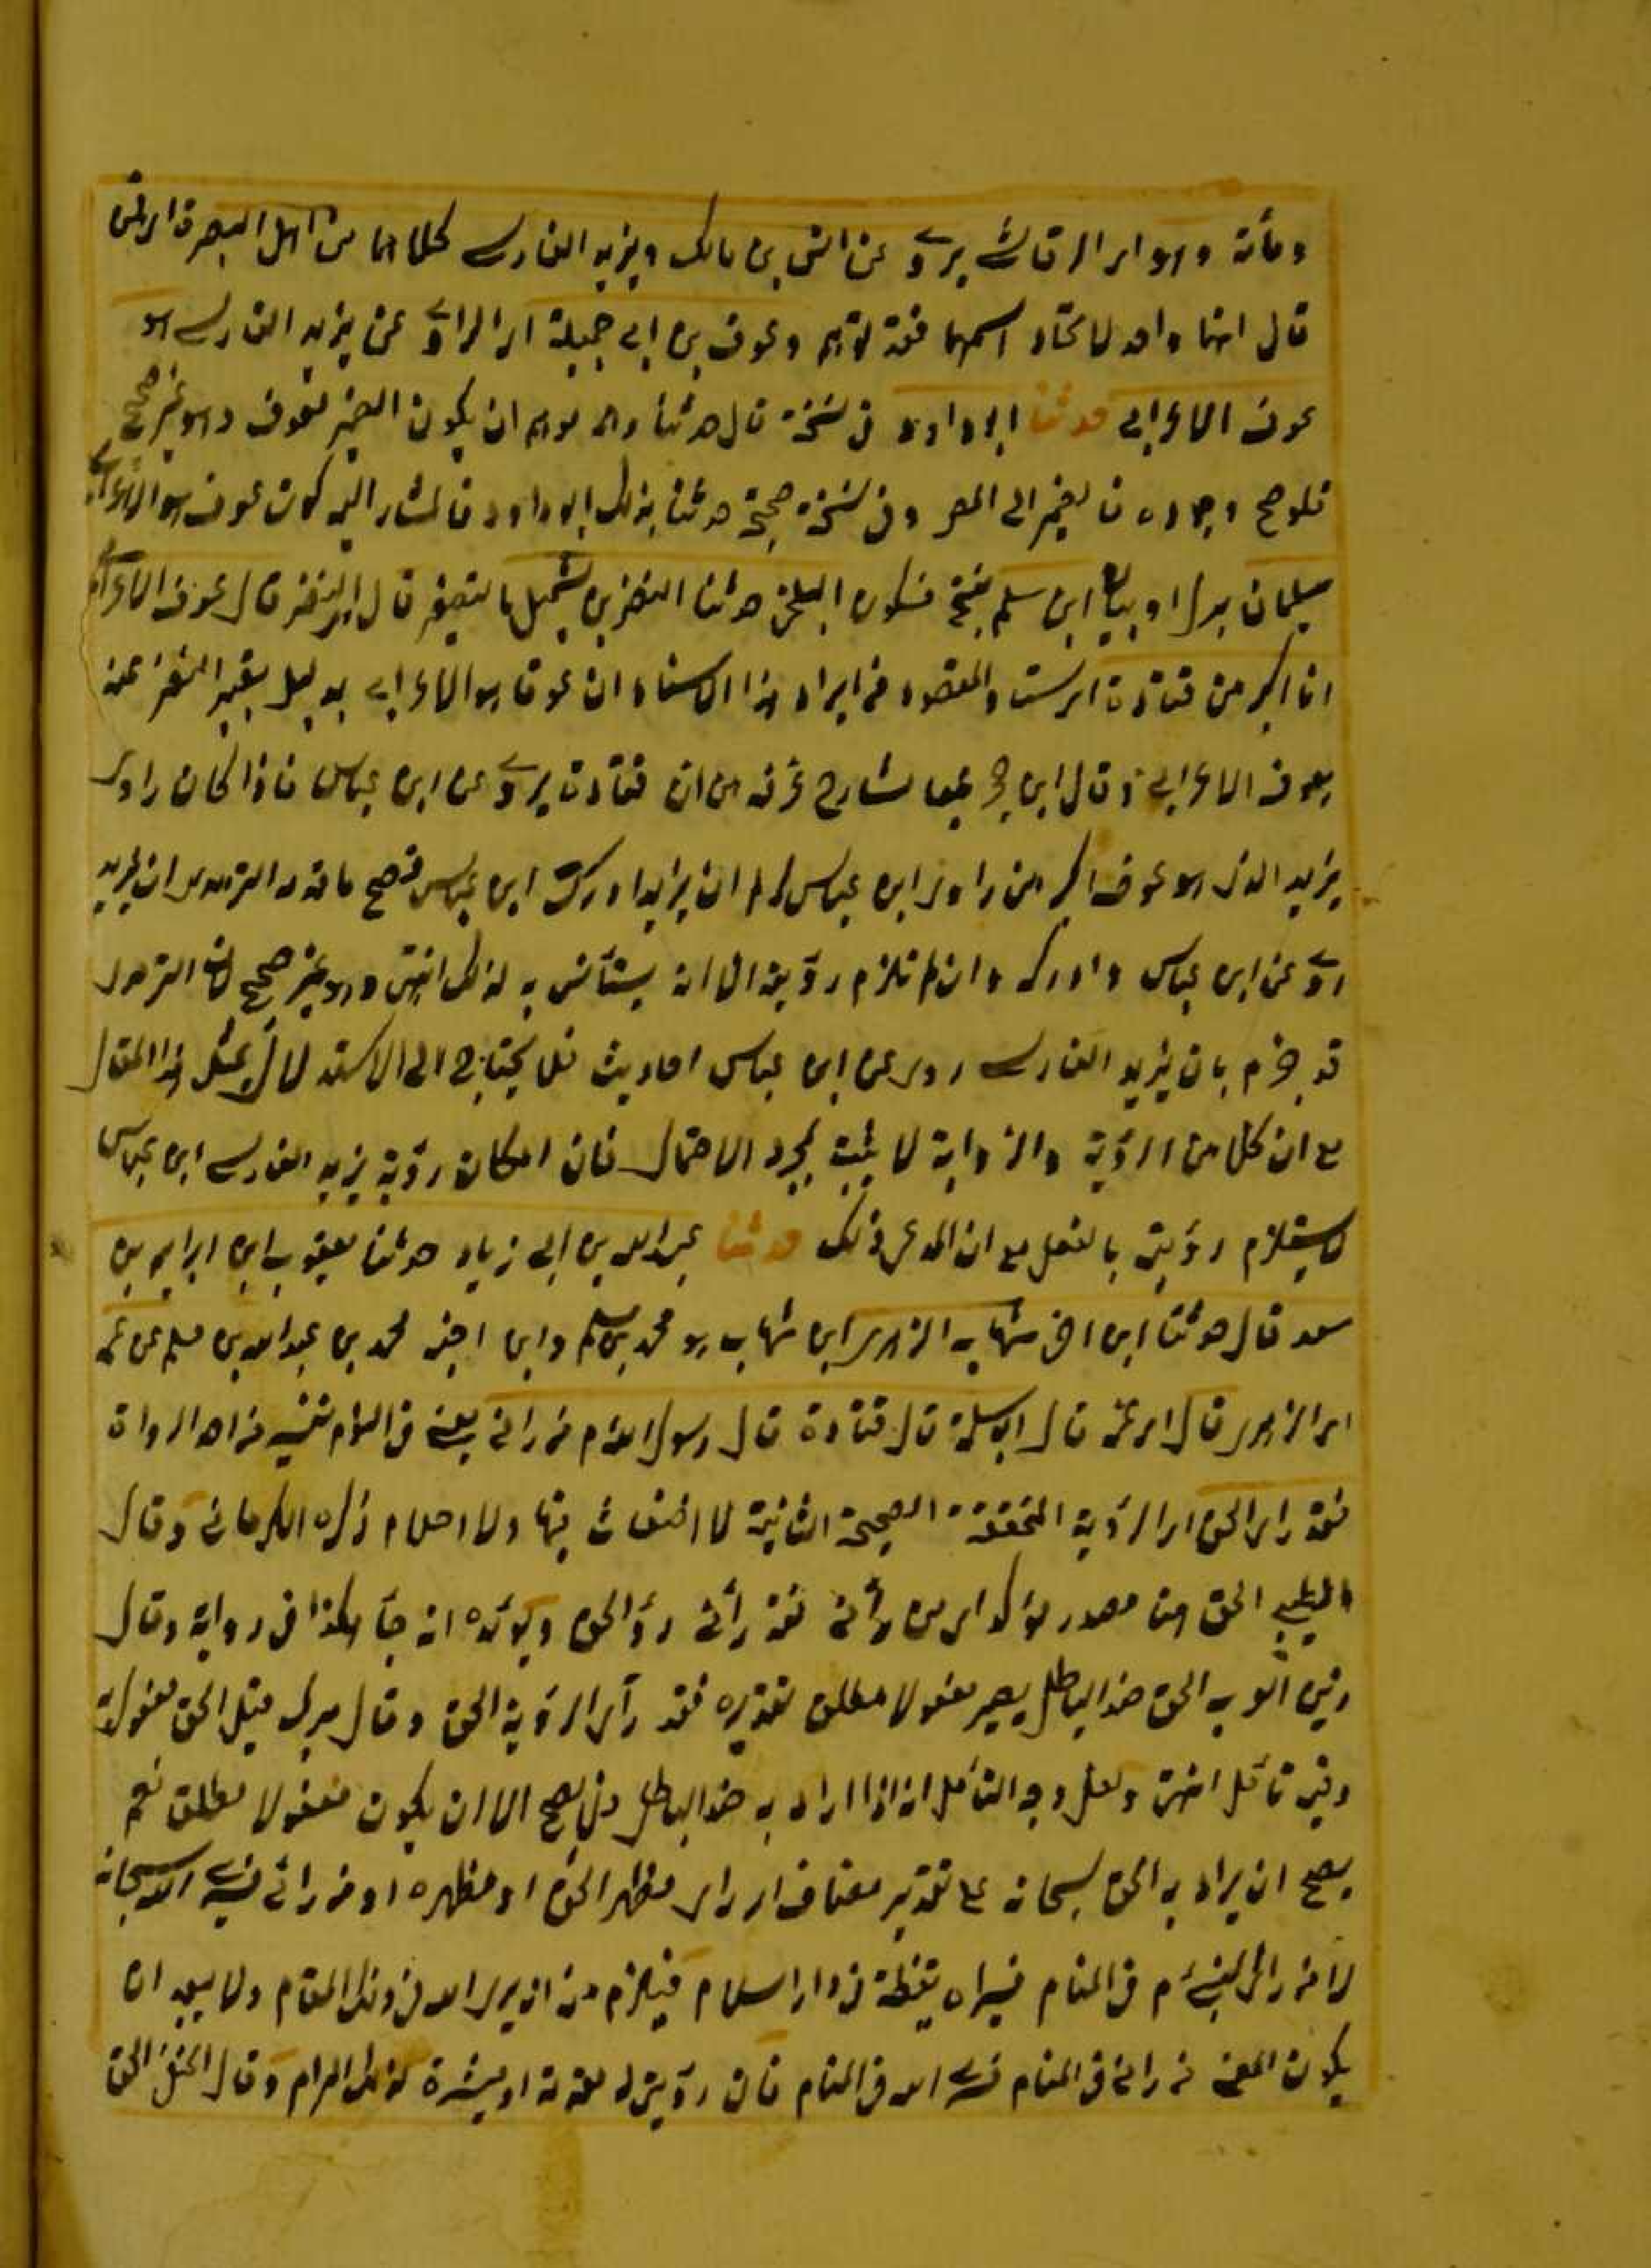 ومأته وهو اي الرقاشي يروي عن انس بن مالك ويزيد الفارسي كلاهما من اهل البصرة اي فمن
قال انهما واحد لاتحاد اسمهما فقد توهم وعوف بن ابي جميلة اي الراوي عن يزيد الفارسي هو
عوف الاعرابي حدثنا ابو داود في نسخة قال حدثنا وهو يوهم ان يكون الضمير لعوف وهو غير صحيح
فلو صح وجوده فالضمير الى المص وفي نسخة صحيحة حدثنا بذلك ابو داود فالمشار اليه كون عوف هو الاعرابي
سليمان بدل او بيان ابن سلم بفتح فسكون البلخي حدثنا النضر بن شميل بالتصغير قال اي النضر قال عوف الاعرابي
انا اكبر من قتادة اي سنا والمقصود من ايراد هذا الاسناد ان عوفا هو الاعرابي بدليل تعبير النضر عنه
بعوف الاعرابي وقال ابن حجر تبعا لشارح غرضه من ان قتادة يروي عن ابن عباس فاذا كان راوي
يزيد الذي هو عوف اكبر من راوي ابن عباس لزم ان يزيد ادرك ابن عباس فصح ما قدمه الترمذي ان يزيد
روى عن ابن عباس وادركه وان لم تلزم رؤيته الا انه يستأنس به لذلك انتهى وهو غير صحيح لان الترمذي
قد جزم بان يزيد الفارسي روى عن ابن عباس احاديث فلا يحتاج الى الاستدلال بمثل هذا المقال
مع ان كلا من الرؤية والرواية لا يثبت بمجرد الاحتمال فان امكان رؤية يزيد الفارسي ابن عباس
لا يستلزم رؤيته بالفعل مع ان المدعى ذلك حدثنا عبد الله بن ابي زياد حدثنا يعقوب ابن ابراهيم بن
سعد قال حدثنا ابن اخي شهاب الزهري ابن شهاب هو محمد بن مسلم وابن اخيه محمد بن عبد الله بن مسلم عن عمه
اي الزهري قال اي عمه قال ابو سلمة قال قتادة قال رسول الله م من راني يعني في النوم تفسير من احد الرواة
فقد راى الحق اي الرؤية المتحققة الصحيحة الثابتة لا اضغاث فيها ولا احلام ذكره الكرماني وقال
الطيبي الحق هنا مصدر مؤكد اي من رأني فقد رأني رؤية الحق ويؤيده انه جاء هكذا في رواية وقال
زين العرب الحق ضد الباطل يصير مفعولا مطلق تقديره فقد رآى الرؤية الحق وقال ميرك قيل الحق مفعول به
وفيه تأمل انتهى ولعل وجه التأمل انه اذا اراد به ضد الباطل فلا يصح الا ان يكون مفعولا مطلق نعم
يصح ان يراد به الحق سبحانه على تقدير مضاف اي راى مظهر الحق او مظهره او من رانى فسيرى الله سبحانه
لان من راى النبي م في المنام فسيراه يقظة في دار السلام فيلزم منه ان يرى الله في ذلك المقام ولا يبعد ان
يكون المعنى من راني في المنام فسيرى الله في المنام فان رؤيتي له مقدمة او مبشرة لذلك المرام وقال الحنفي الحق